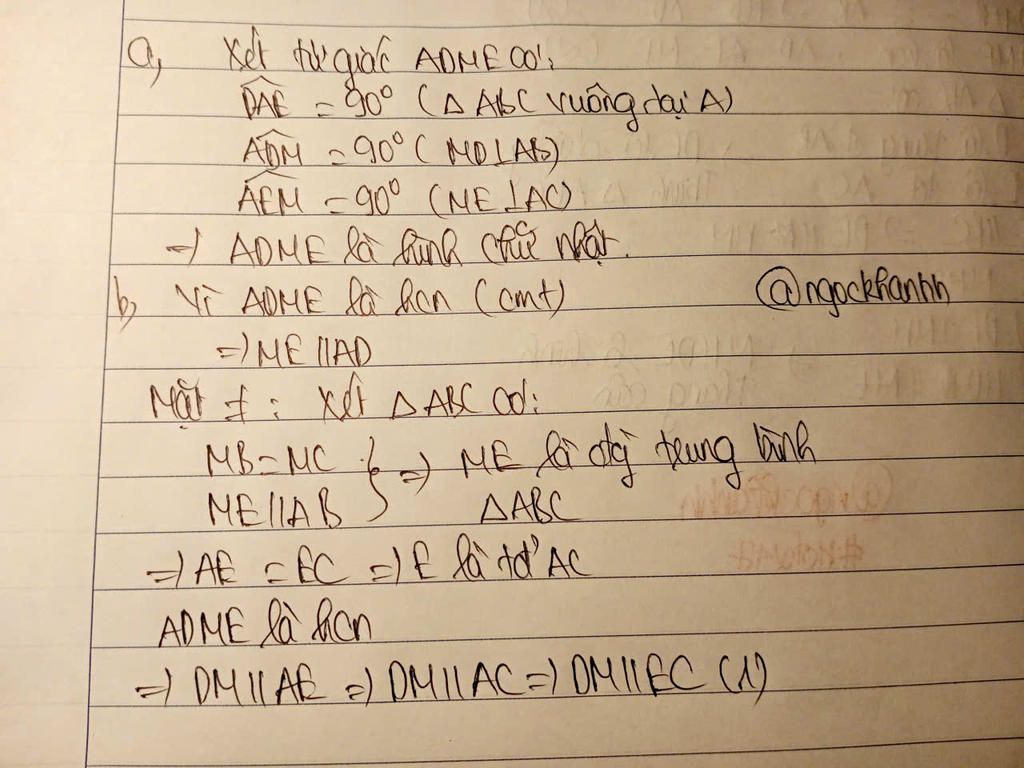 a, Xét tứ giác ADME có:
DAE = 90° (Δ ABC vuông tại A)
ADM = 90° (MD⊥AB)
AEM = 90° (ME⊥AC)
=> ADME là hình chữ nhật.
b, Vì ADME là hcn (cmt) @ngockhanhh
=> ME//AD
Mặt ≠: Xét Δ ABC có:
MB=MC } => ME là đg trung bình
ME//AB ΔABC
=> AE = EC => E là tđ' AC
ADME là hcn
=> DM//AE => DM//AC => DM//EC (1)